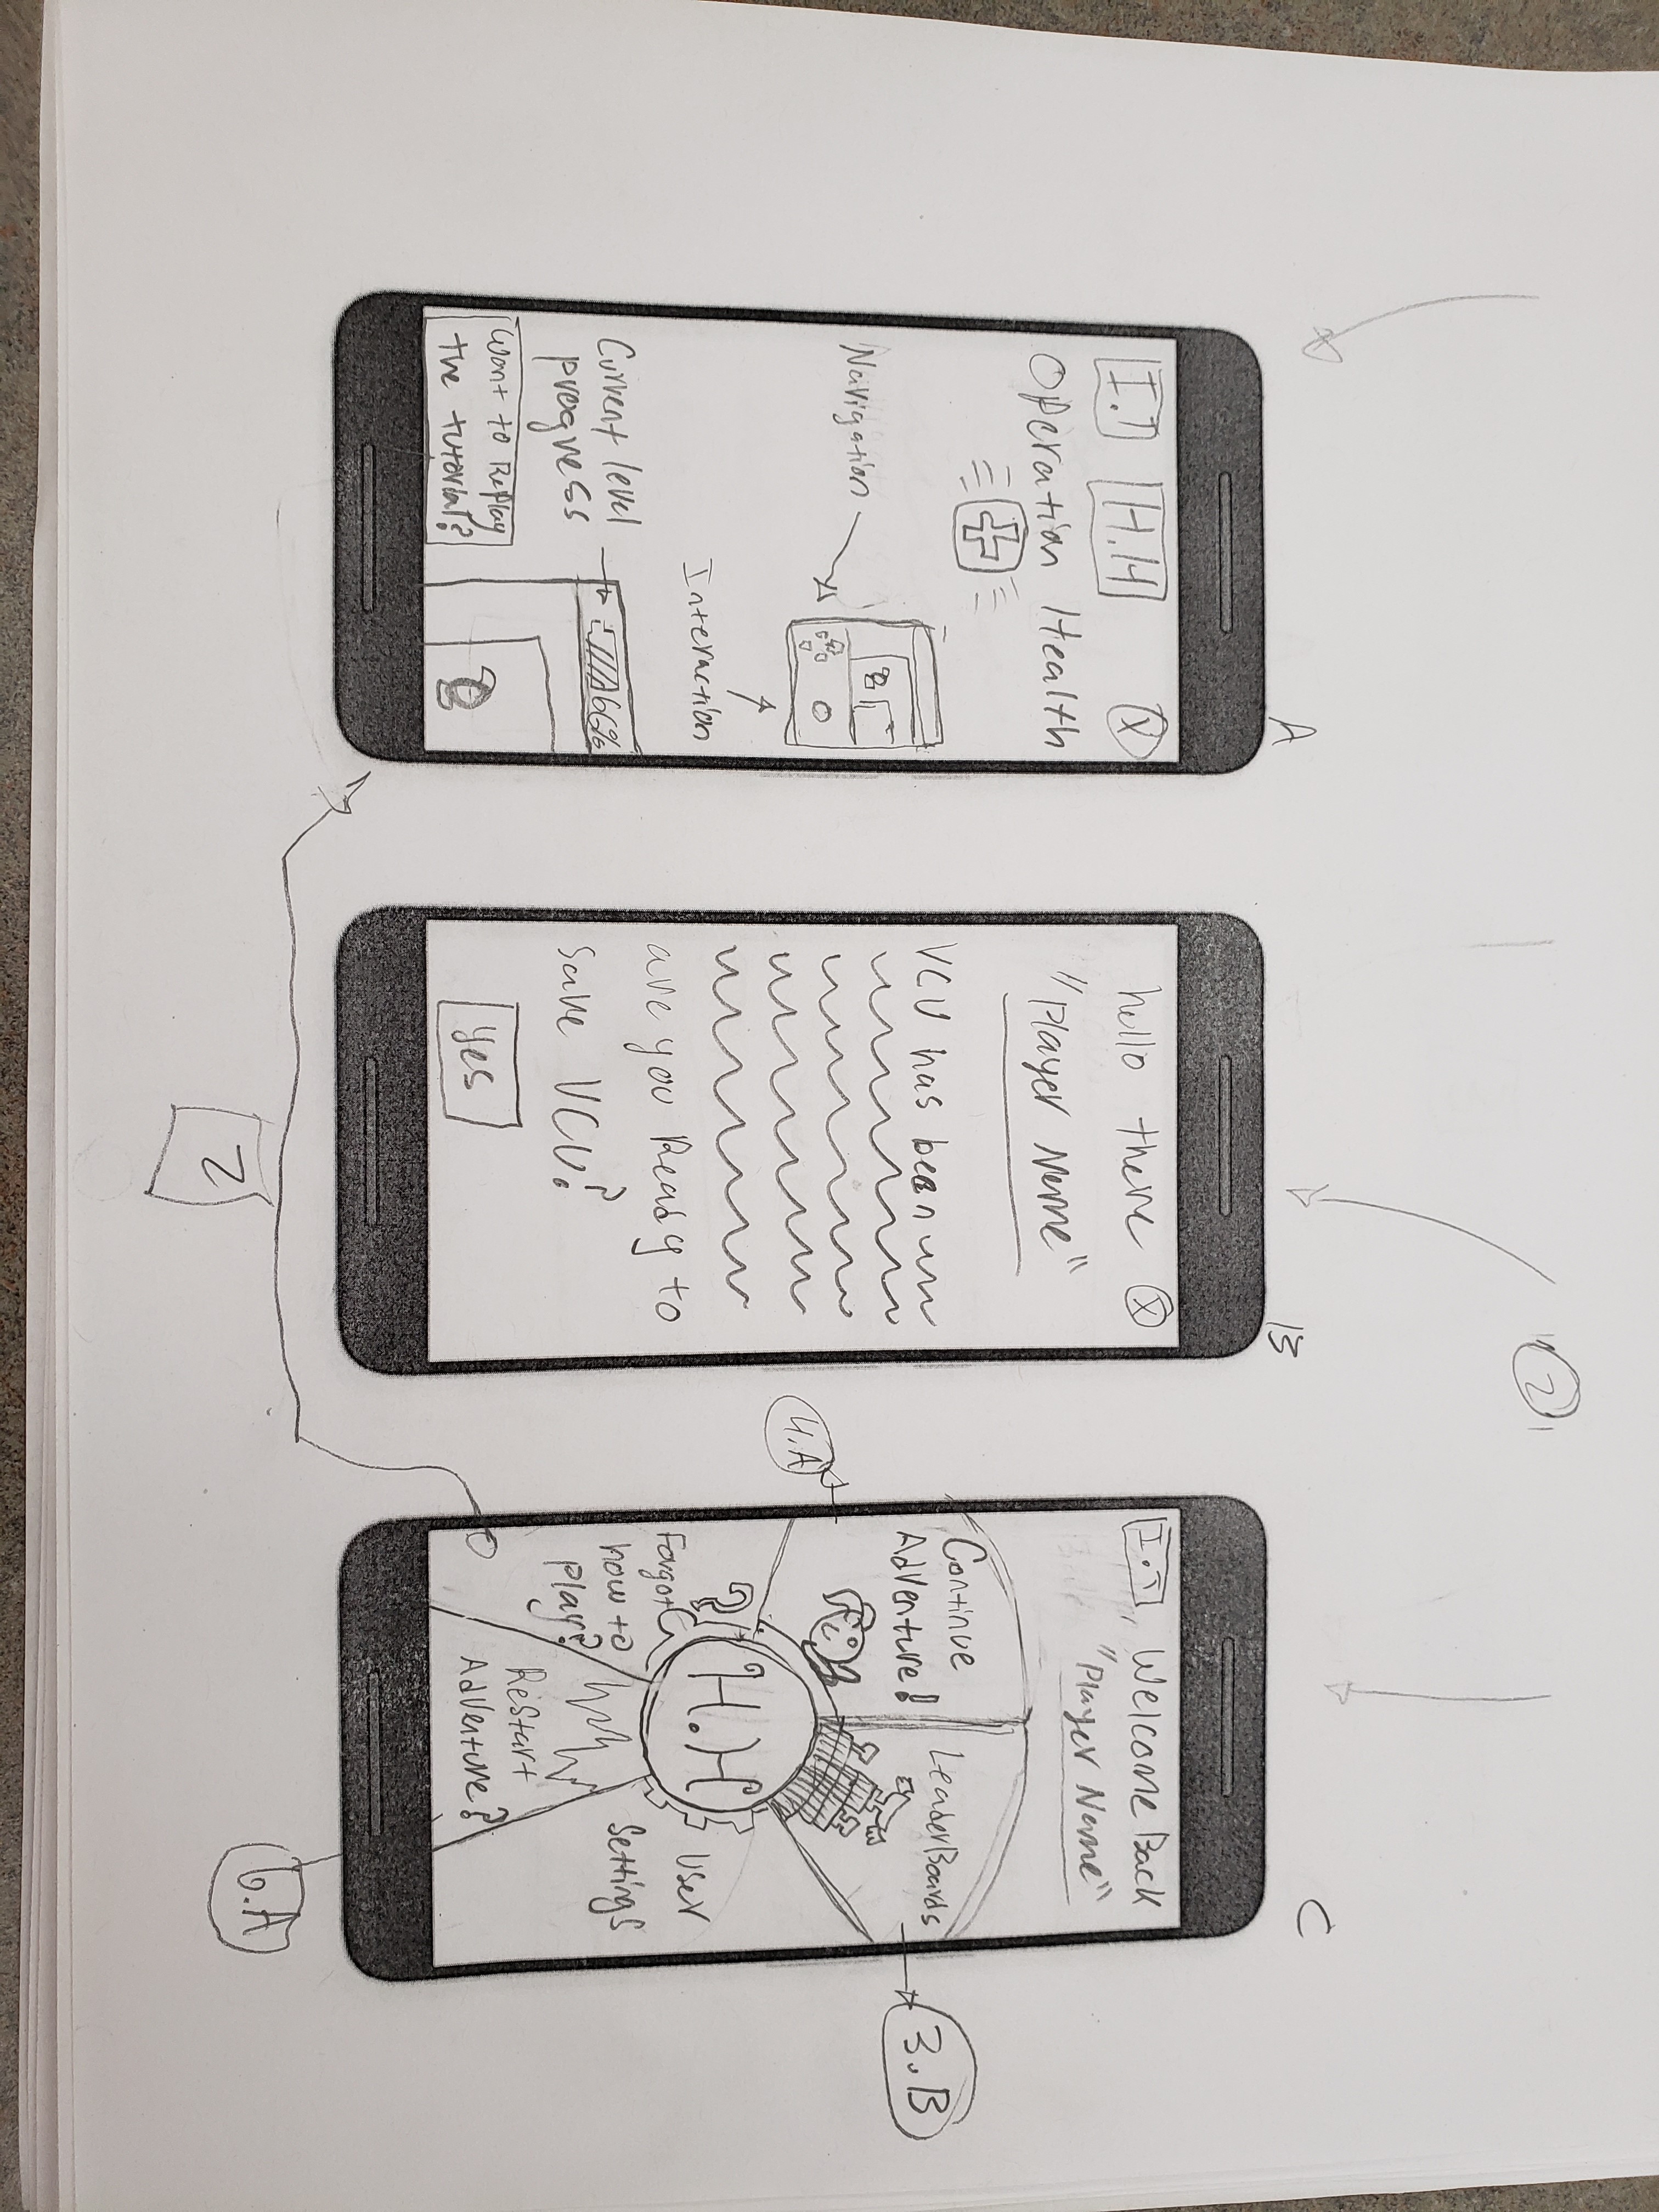 2
A
I.T H.H X
Operation Health
Navigation
Interaction
Current level
progress
66%
Want to Replay
the tutorial?
B
hello there X
"Player Name"
VCU has been
are you Ready to
save VCU?
Yes
C
I.T Welcome Back
"Player Name"
Continue
Adventure!
LeaderBoards
H.H
Forgot
how to
play?
User
Settings
Restart
Adventure?
4.A
3.B
6.A
2